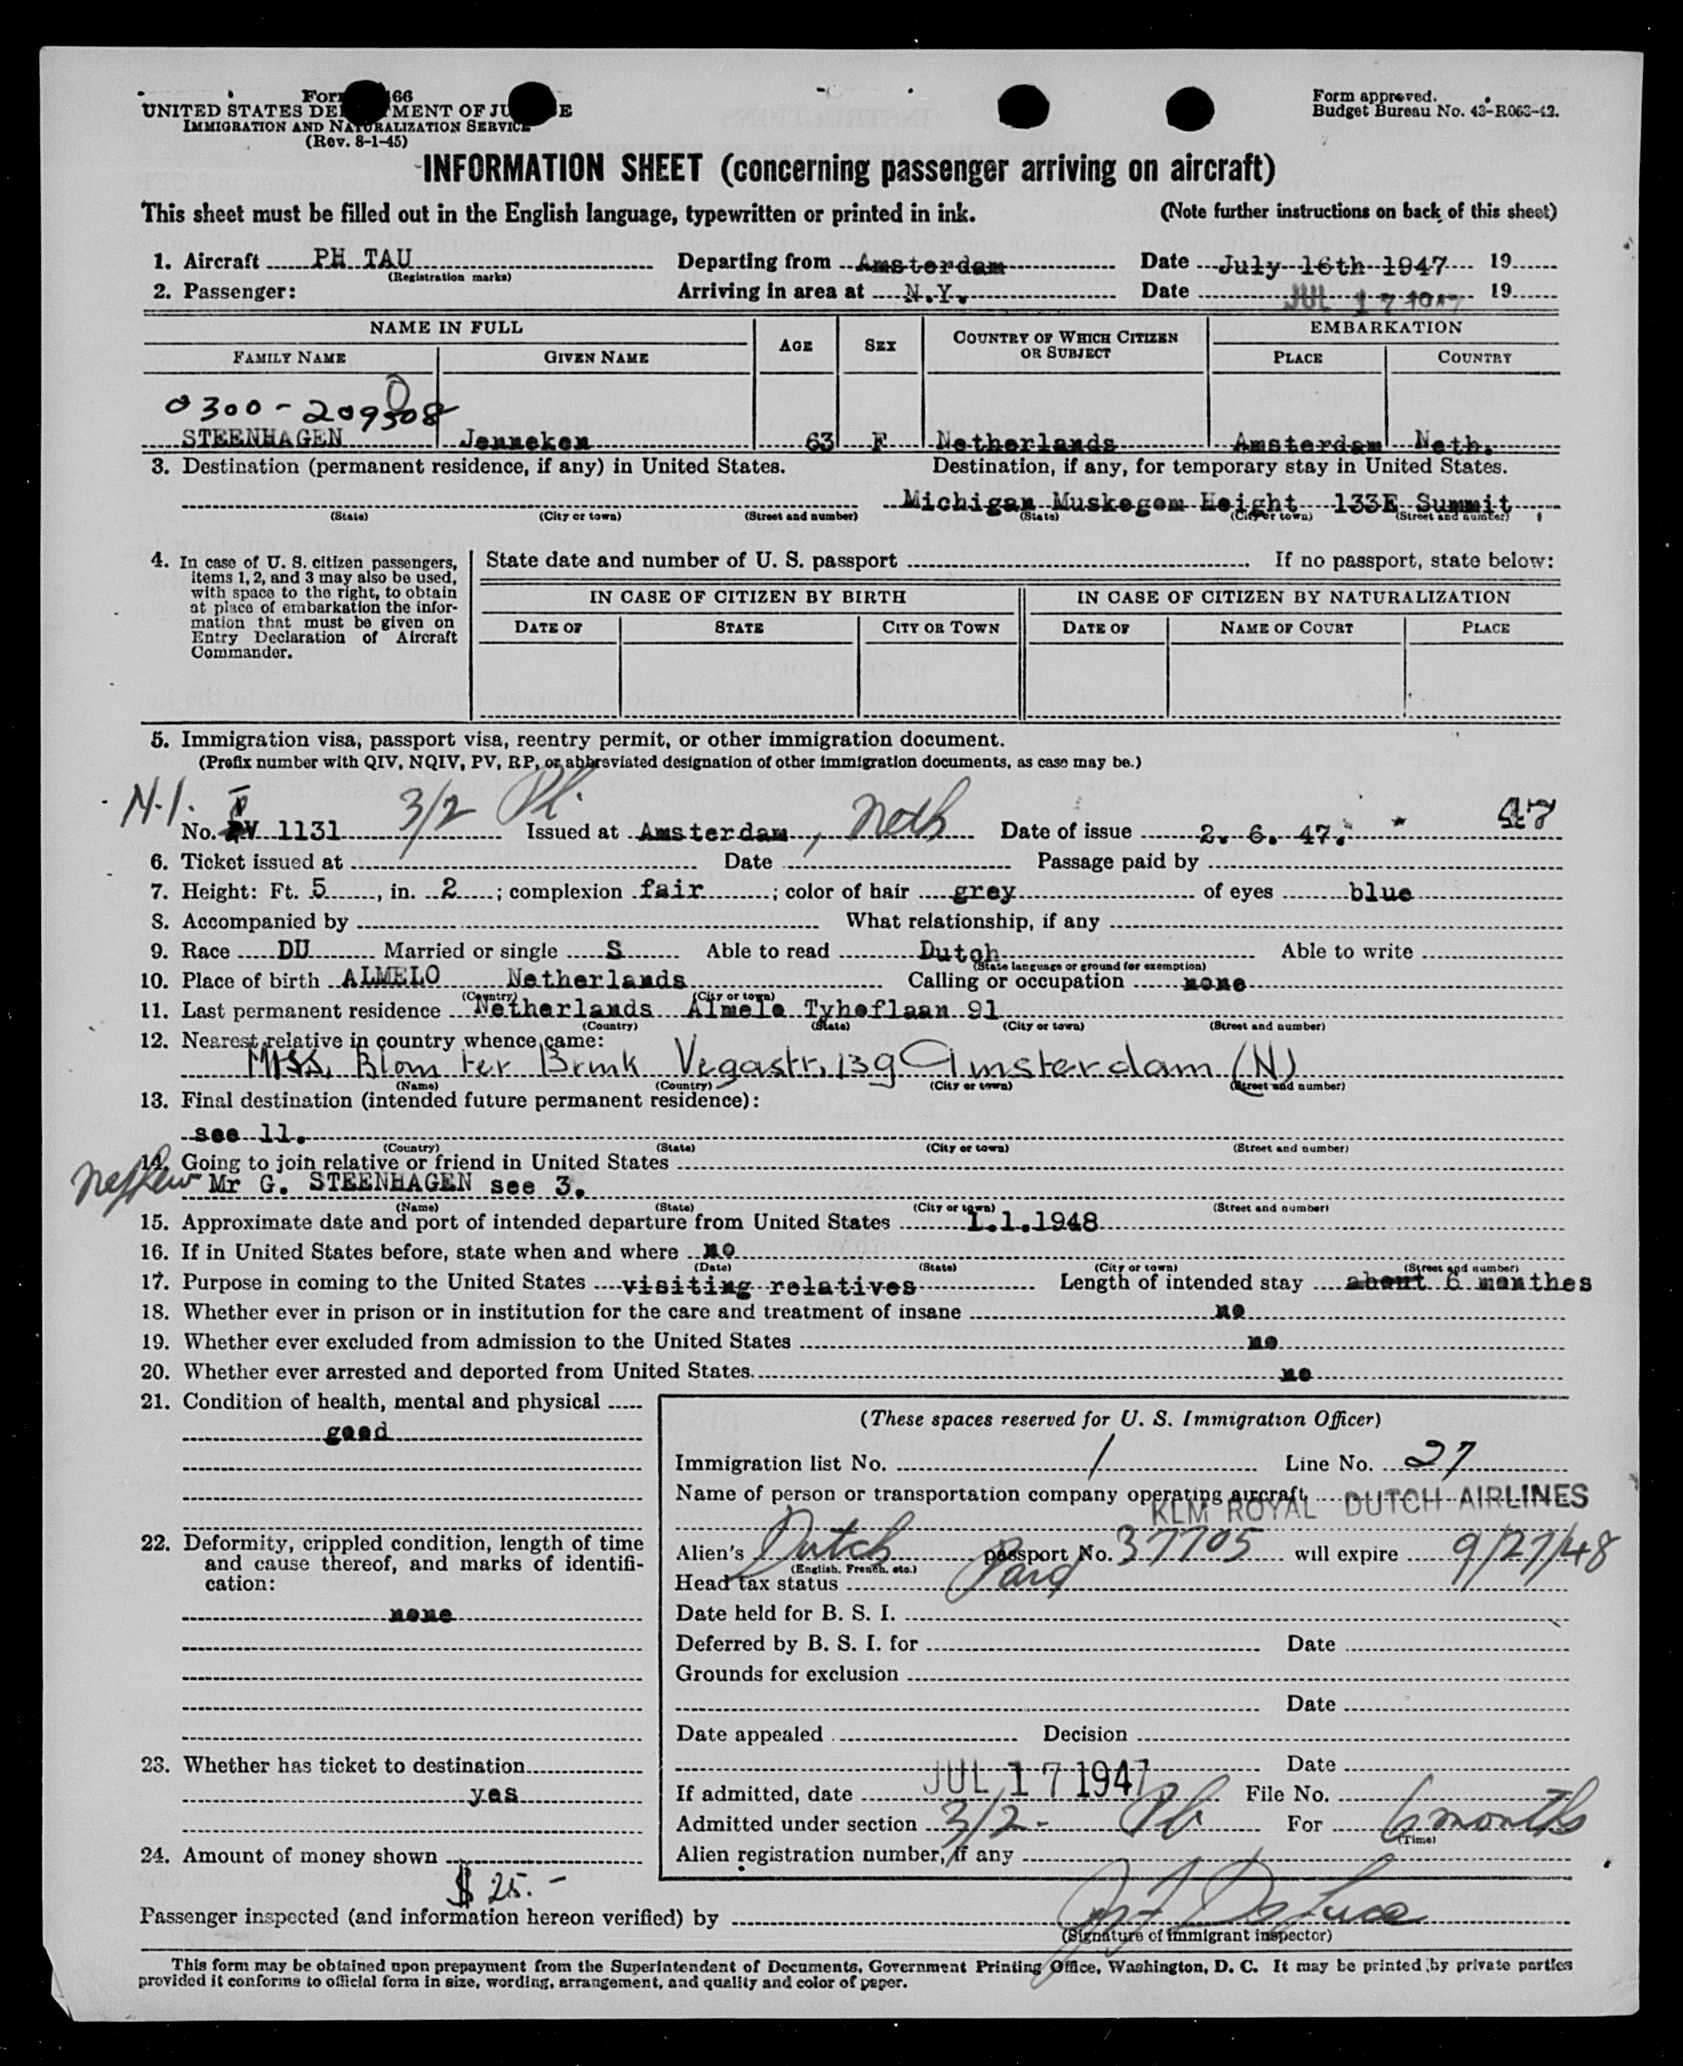 Form 66
UNITED STATES DE MENT OF JU E
IMMIGRATION AND NATURALIZATION SERVICE
(Rev. 8-1-45)
Form approved.
Budget Bureau No. 43-R063-42.
INFORMATION SHEET (concerning passenger arriving on aircraft)
This sheet must be filled out in the English language, typewritten or printed in ink. (Note further instructions on back of this sheet)
1. Aircraft PH TAU Departing from Amsterdam Date July 16th 1947 19
(Registration marks)
2. Passenger: Arriving in area at N.Y. Date JUL 17 1947 19
NAME IN FULL AGE SEX COUNTRY OF WHICH CITIZEN OR SUBJECT EMBARKATION
FAMILY NAME GIVEN NAME PLACE COUNTRY
0300-209508
STEENHAGEN Jenneken 63 F Netherlands Amsterdam Neth.
3. Destination (permanent residence, if any) in United States. Destination, if any, for temporary stay in United States.
Michigan Muskegom Height 133E Summit
(State) (City or town) (Street and number) (State) (City or town) (Street and number)
4. In case of U. S. citizen passengers, items 1, 2, and 3 may also be used, with space to the right, to obtain at place of embarkation the information that must be given on Entry Declaration of Aircraft Commander.
State date and number of U. S. passport If no passport, state below:
IN CASE OF CITIZEN BY BIRTH IN CASE OF CITIZEN BY NATURALIZATION
DATE OF STATE CITY OR TOWN DATE OF NAME OF COURT PLACE
5. Immigration visa, passport visa, reentry permit, or other immigration document.
(Prefix number with QIV, NQIV, PV, RP, or abbreviated designation of other immigration documents, as case may be.)
N.I. No. V 1131 3/2 Issued at Amsterdam, Neth Date of issue 2. 6. 47. 47
6. Ticket issued at Date Passage paid by
7. Height: Ft. 5, in. 2; complexion fair; color of hair grey of eyes blue
8. Accompanied by What relationship, if any
9. Race DU Married or single S Able to read Dutch Able to write
(State language or ground for exemption)
10. Place of birth ALMELO Netherlands Calling or occupation none
(Country) (City or town)
11. Last permanent residence Netherlands Almelo Tyhoflaan 91
(Country) (State) (City or town) (Street and number)
12. Nearest relative in country whence came:
Miss. Blom ter Brink Vegastr. 139 Amsterdam (N)
(Name) (Country) (City or town) (Street and number)
13. Final destination (intended future permanent residence):
see 11.
(Country) (State) (City or town) (Street and number)
14. Going to join relative or friend in United States
nephew Mr G. STEENHAGEN see 3.
(Name) (State) (City or town) (Street and number)
15. Approximate date and port of intended departure from United States 1.1.1948
16. If in United States before, state when and where no
(Date) (State) (City or town) (Street and number)
17. Purpose in coming to the United States visiting relatives Length of intended stay about 6 monthes
18. Whether ever in prison or in institution for the care and treatment of insane no
19. Whether ever excluded from admission to the United States no
20. Whether ever arrested and deported from United States. no
21. Condition of health, mental and physical
good
22. Deformity, crippled condition, length of time and cause thereof, and marks of identification:
none
23. Whether has ticket to destination
yes
24. Amount of money shown
$ 25.-
(These spaces reserved for U. S. Immigration Officer)
Immigration list No. 1 Line No. 27
Name of person or transportation company operating aircraft
KLM ROYAL DUTCH AIRLINES
Alien's Dutch passport No. 37705 will expire 9/27/48
(English, French, etc.)
Head tax status Paid
Date held for B. S. I.
Deferred by B. S. I. for Date
Grounds for exclusion
Date
Date appealed Decision
Date
If admitted, date JUL 17 1947 File No.
Admitted under section 3/2- For 6 months
(Time)
Alien registration number, if any
Passenger inspected (and information hereon verified) by
(Signature of immigrant inspector)
This form may be obtained upon prepayment from the Superintendent of Documents, Government Printing Office, Washington, D. C. It may be printed by private parties
provided it conforms to official form in size, wording, arrangement, and quality and color of paper.